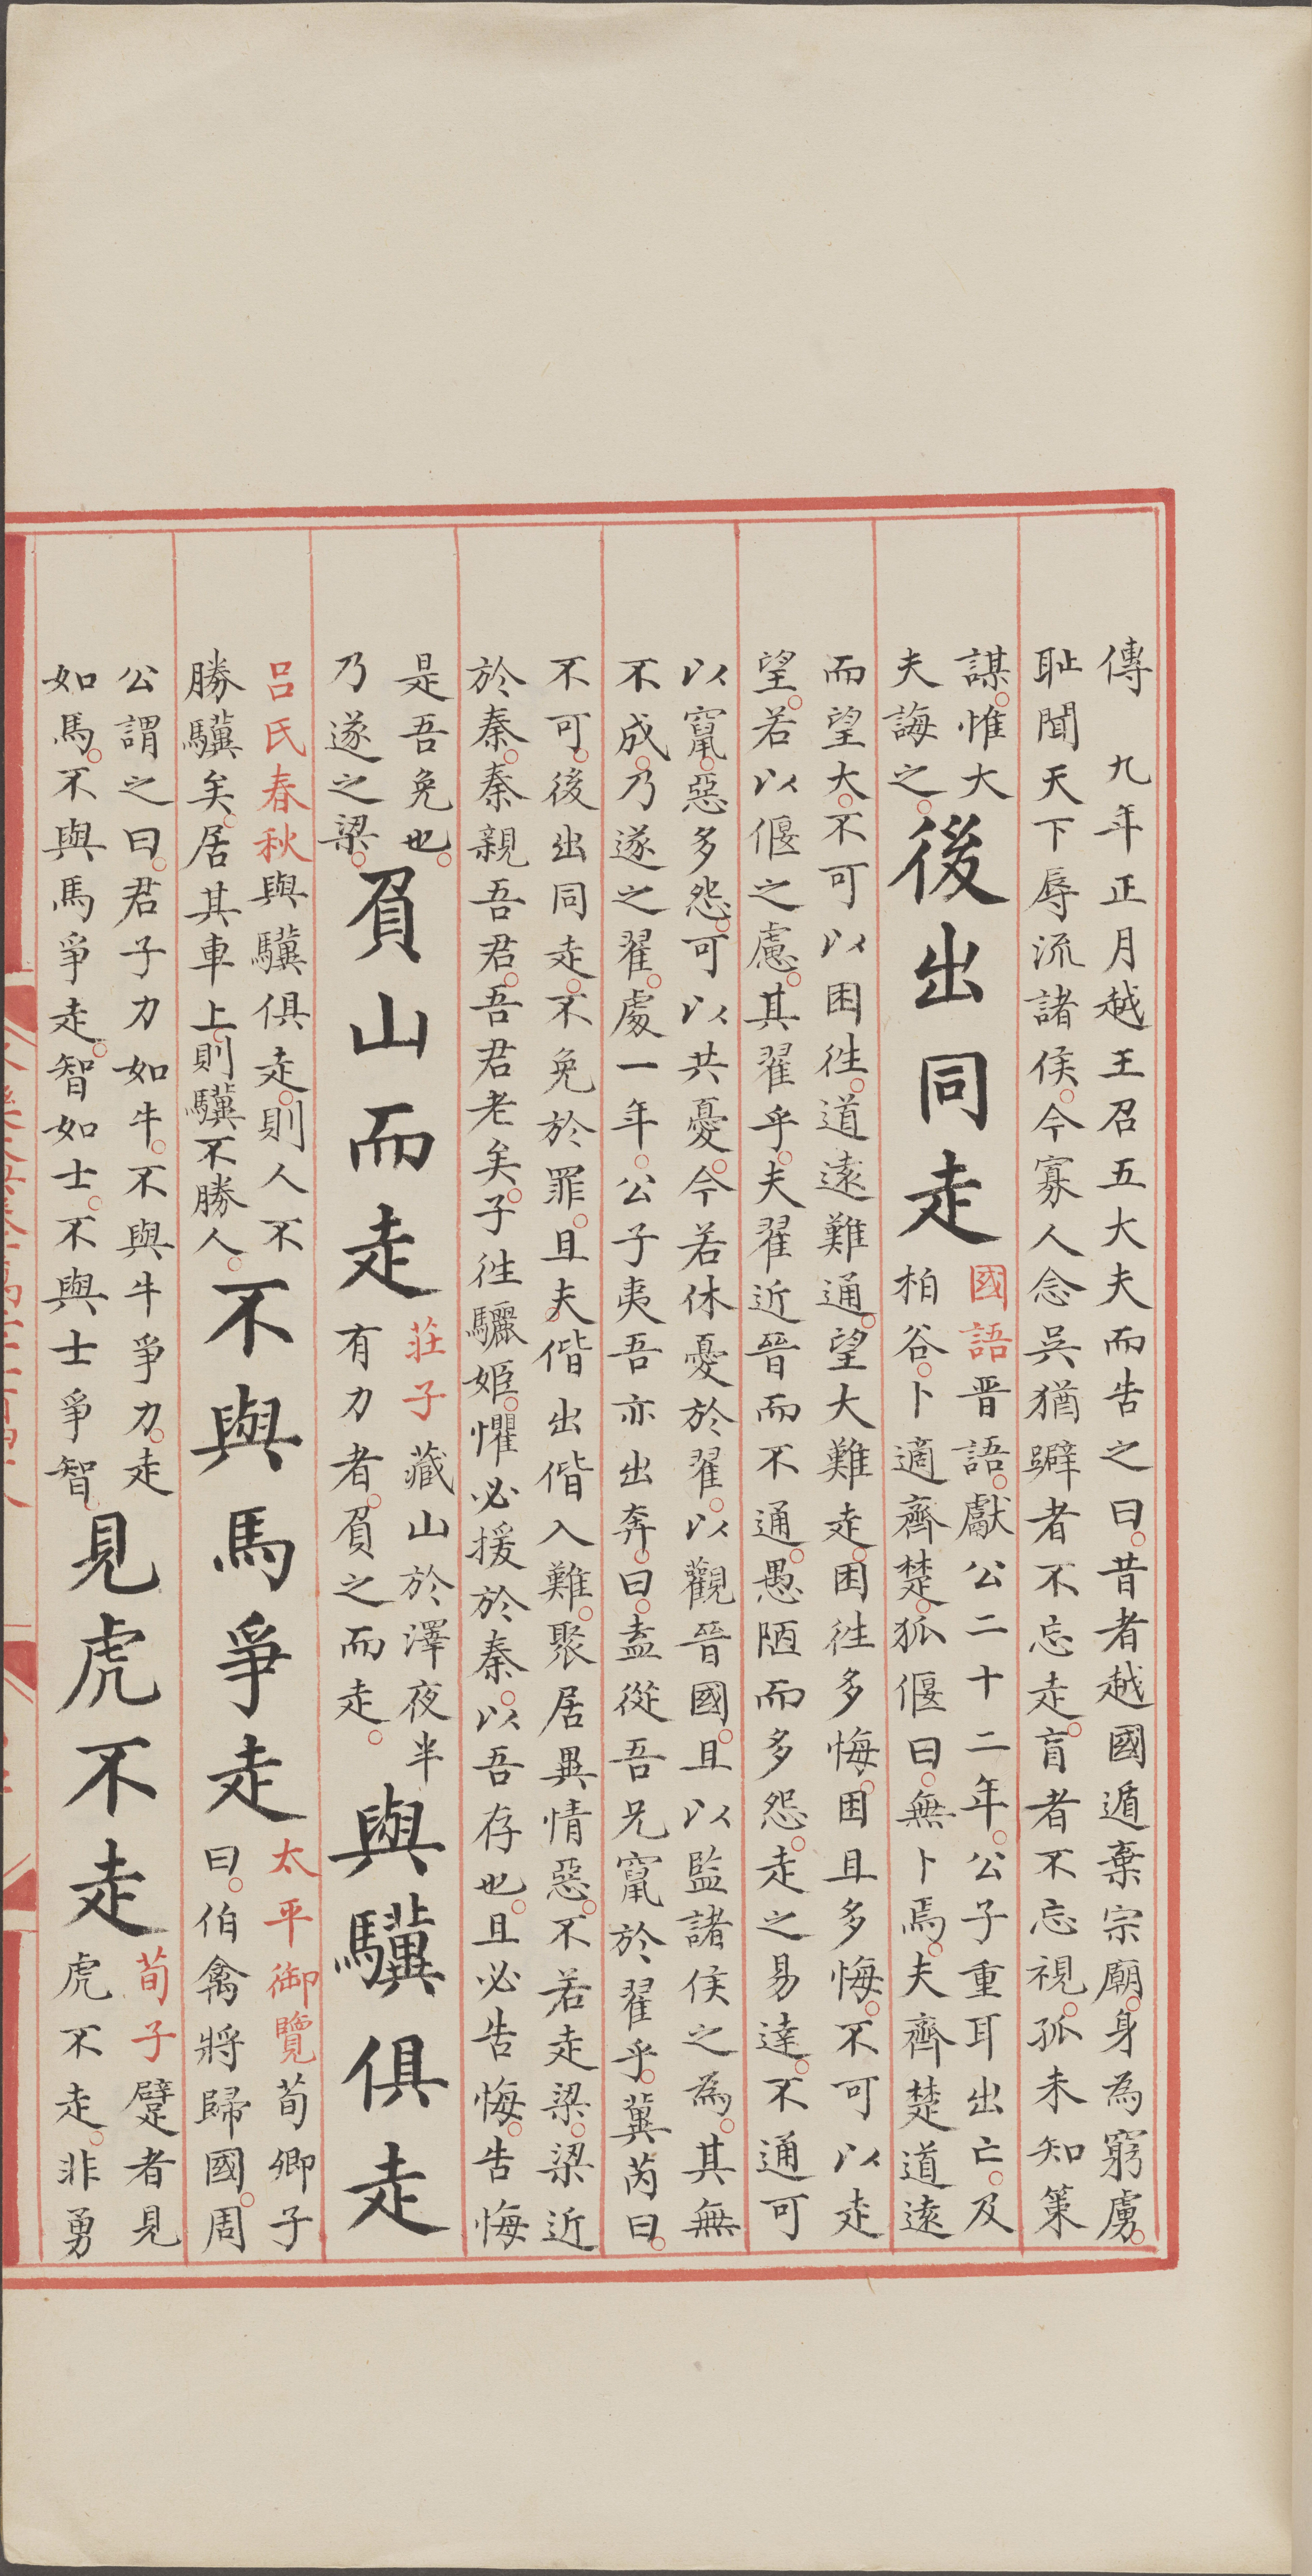 傳 九年正月越王召五大夫而告之曰昔者越國遁棄宗廟身為窮虜
耻聞天下辱流諸侯今寡人念吳猶躃者不忘走盲者不忘視孤未知策
謀惟大
夫誨之
後出同走
國語晉語獻公二十二年公子重耳出亡及
柏谷卜適齊楚狐偃曰無卜焉夫齊楚道遠
而望大不可以困徃道遠難通望大難走困徃多悔困且多悔不可以走
望若以偃之慮其翟乎夫翟近晉而不通愚陋而多怨走之易達不通可
以竄惡多怨可以共憂今若休憂於翟以觀晉國且以監諸侯之為其無
不成乃遂之翟處一年公子夷吾亦出奔曰盍從吾兄竄於翟乎冀芮曰
不可後出同走不免於罪且夫偕出偕入難聚居異情惡不若走梁梁近
於秦秦親吾君吾君老矣子徃驪姬懼必援於秦以吾存也且必告悔告悔
是吾免也
乃遂之梁
負山而走
莊子藏山於澤夜半
有力者負之而走
與驥俱走
呂氏春秋與驥俱走則人不
勝驥矣居其車上則驥不勝人
不與馬爭走
太平御覽荀卿子
曰伯禽將歸國周
公謂之曰君子力如牛不與牛爭力走
如馬不與馬爭走智如士不與士爭智
見虎不走
荀子躄者見
虎不走非勇